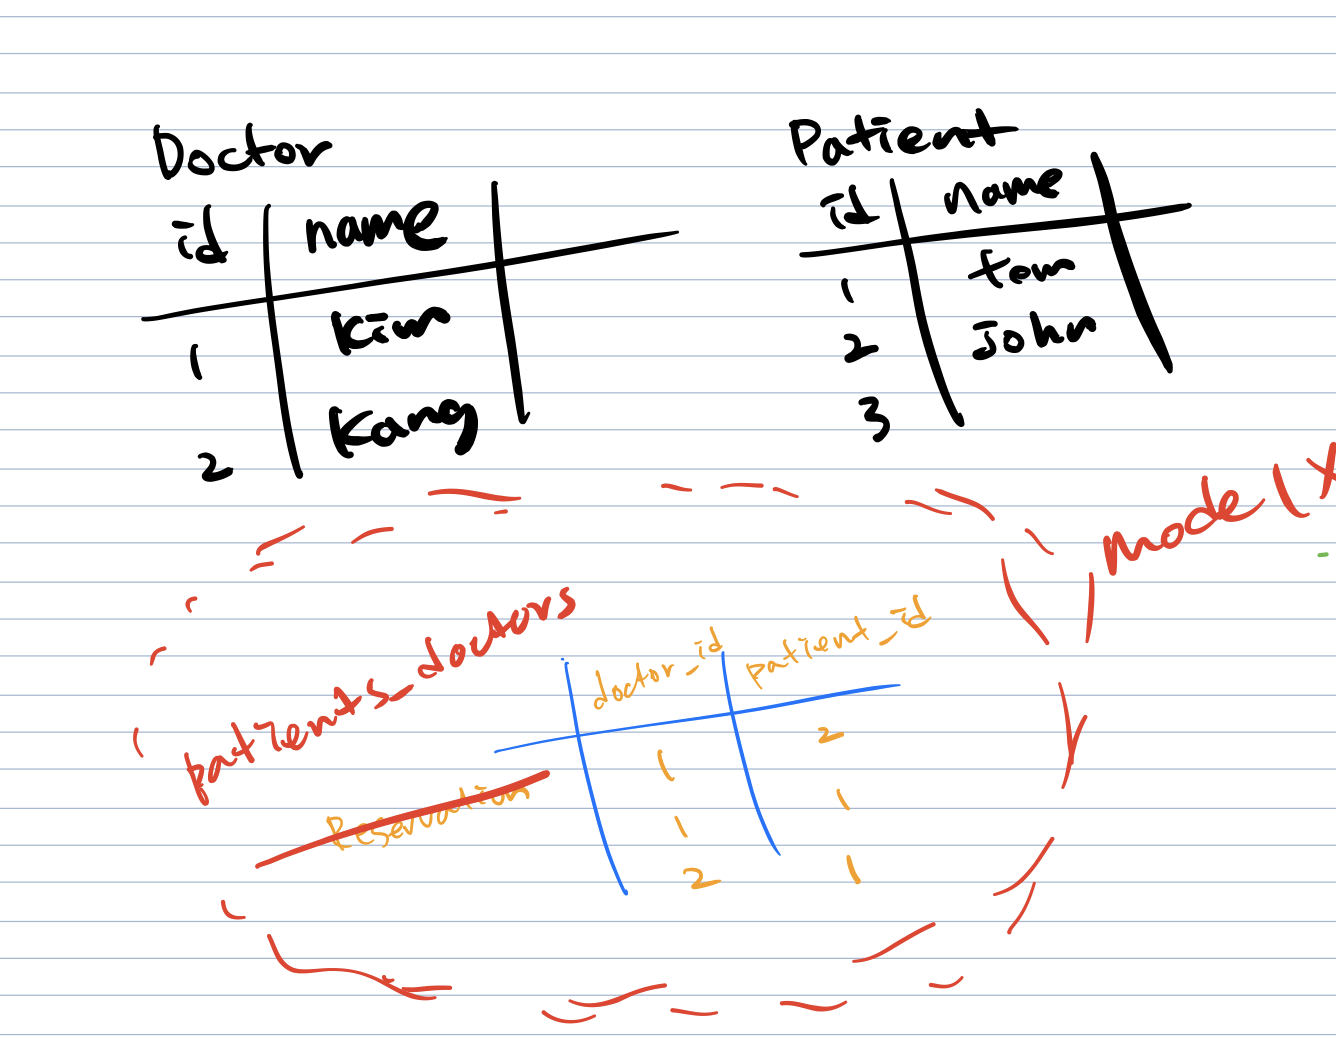 Doctor
id name
1 Kim
2 Kang
Patient
id name
1 tom
2 John
3
mode(X
patients_doctors
Reservation
doctor_id patient_id
1 2
1 1
2 1